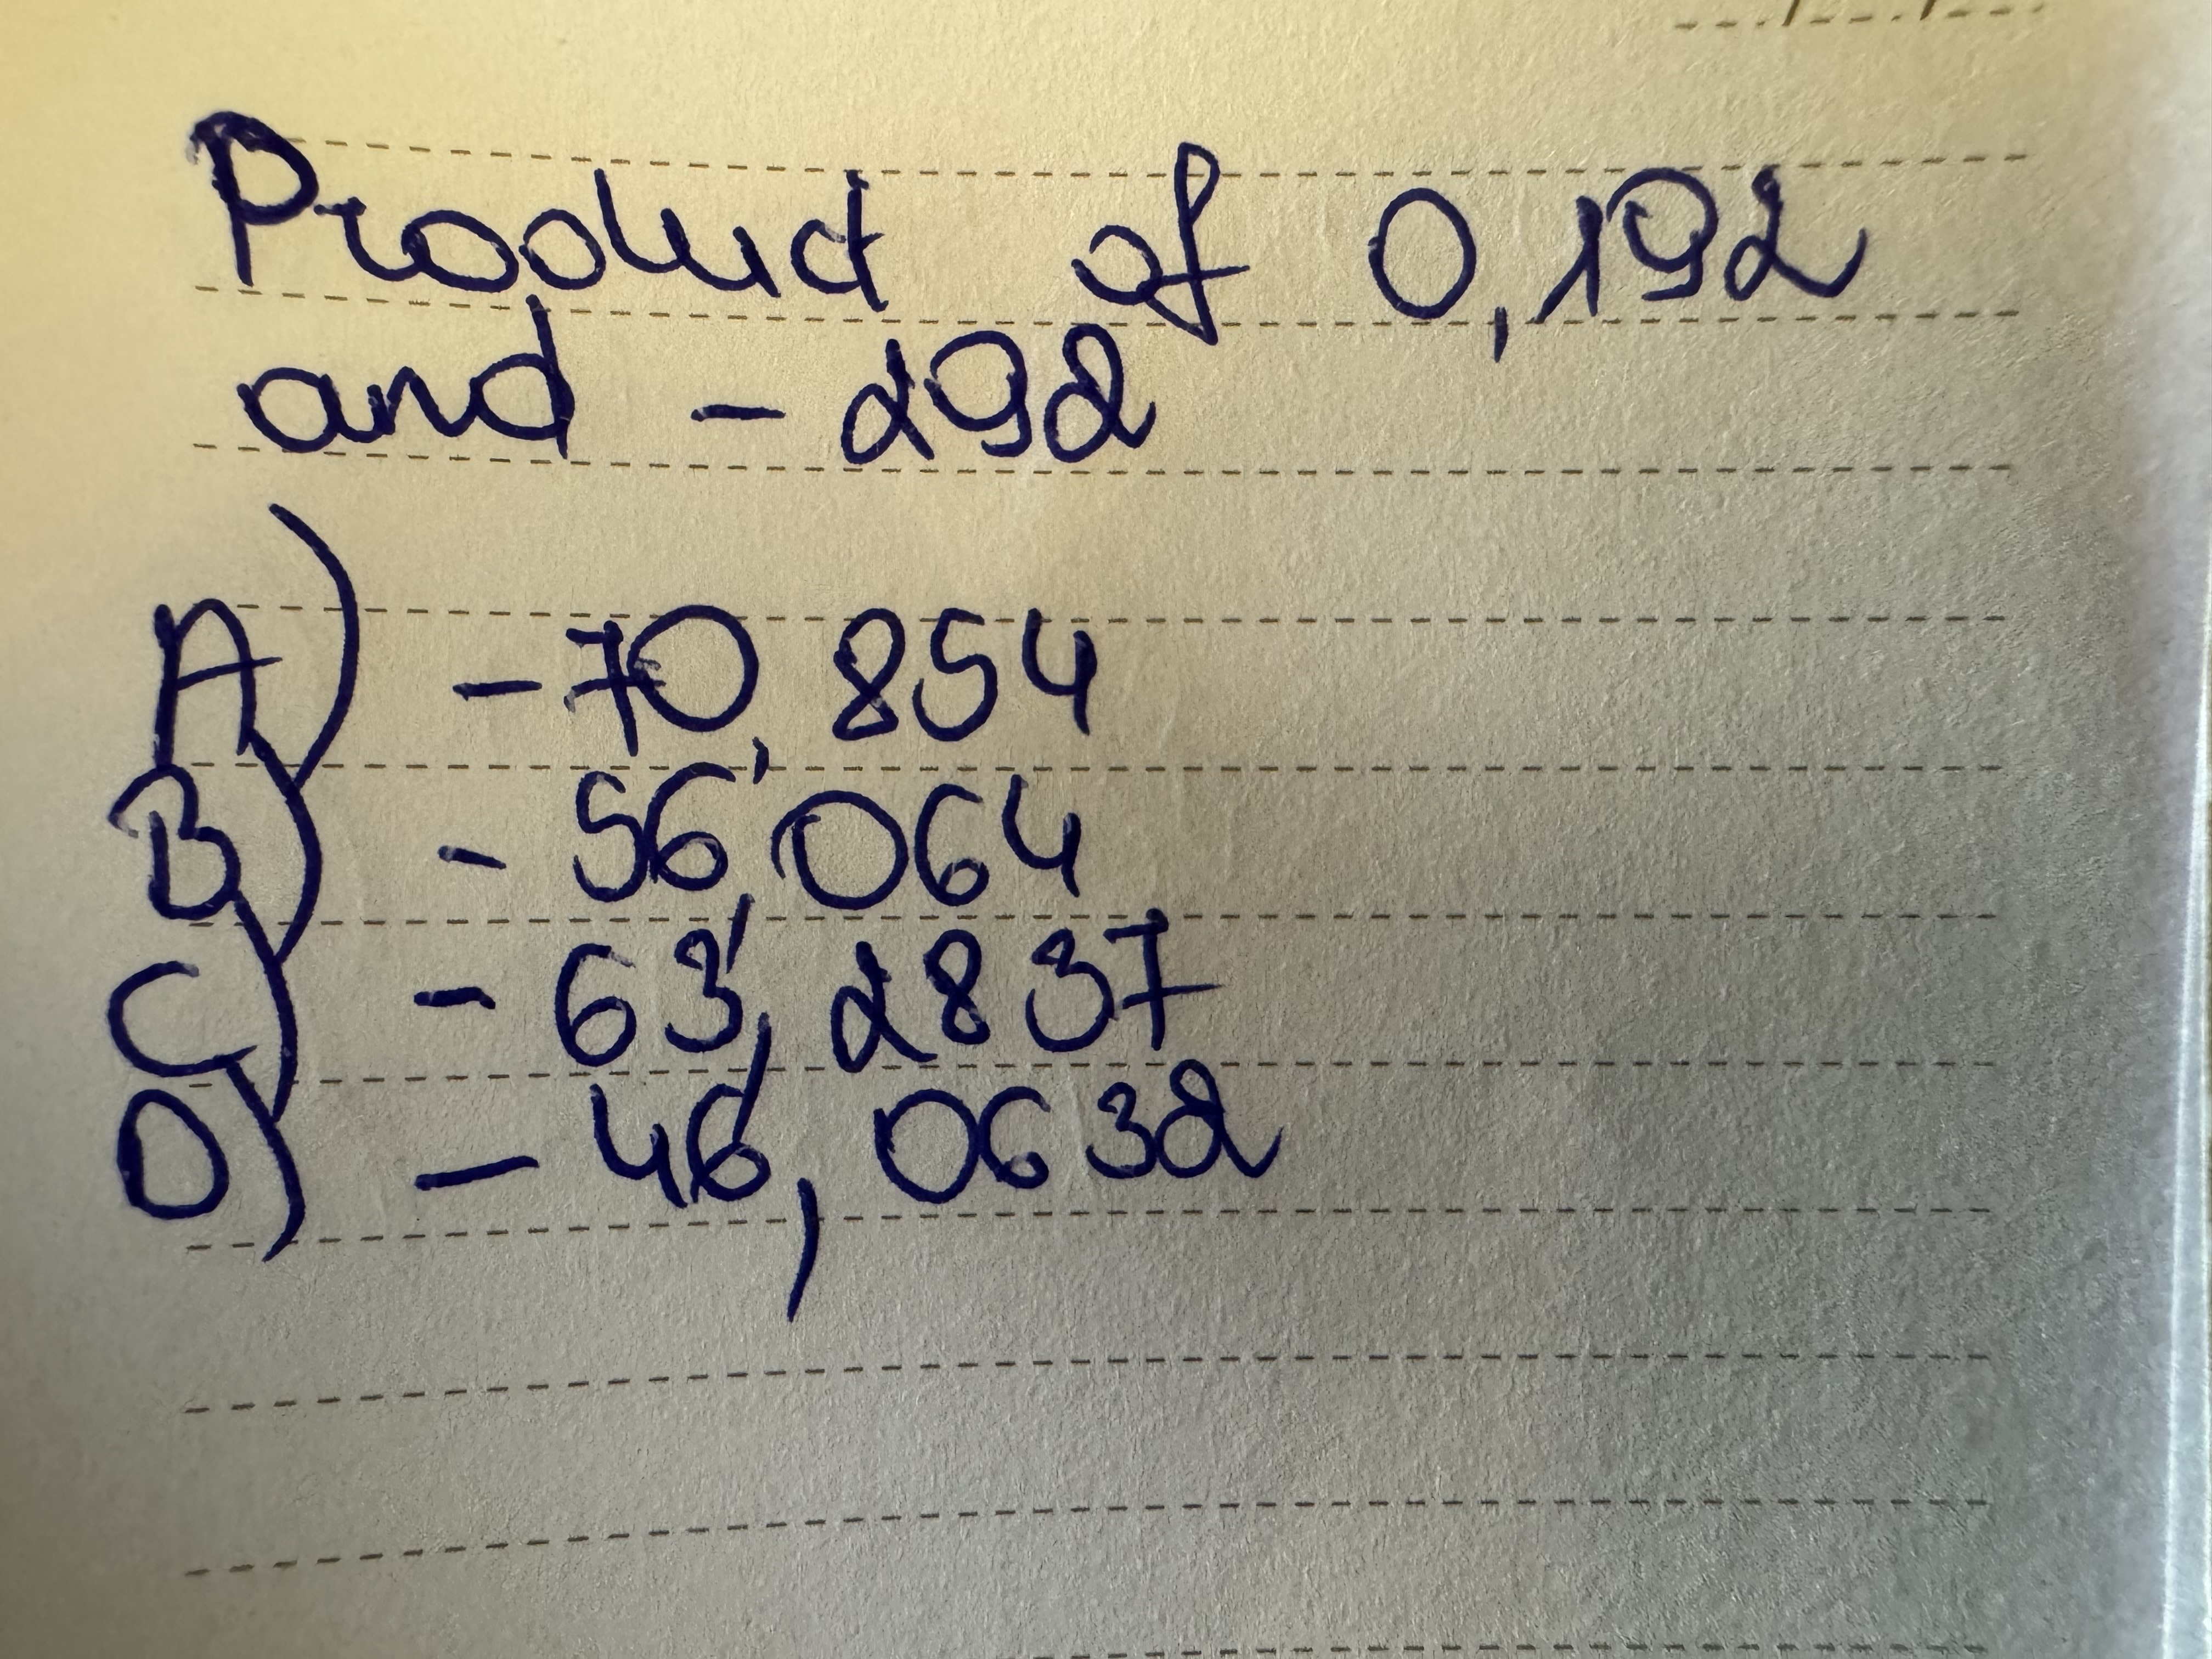 Product of 0,192
and - 292
A) - 70, 854
B) - 56,064
C) - 63, 2837
D) - 46, 0632